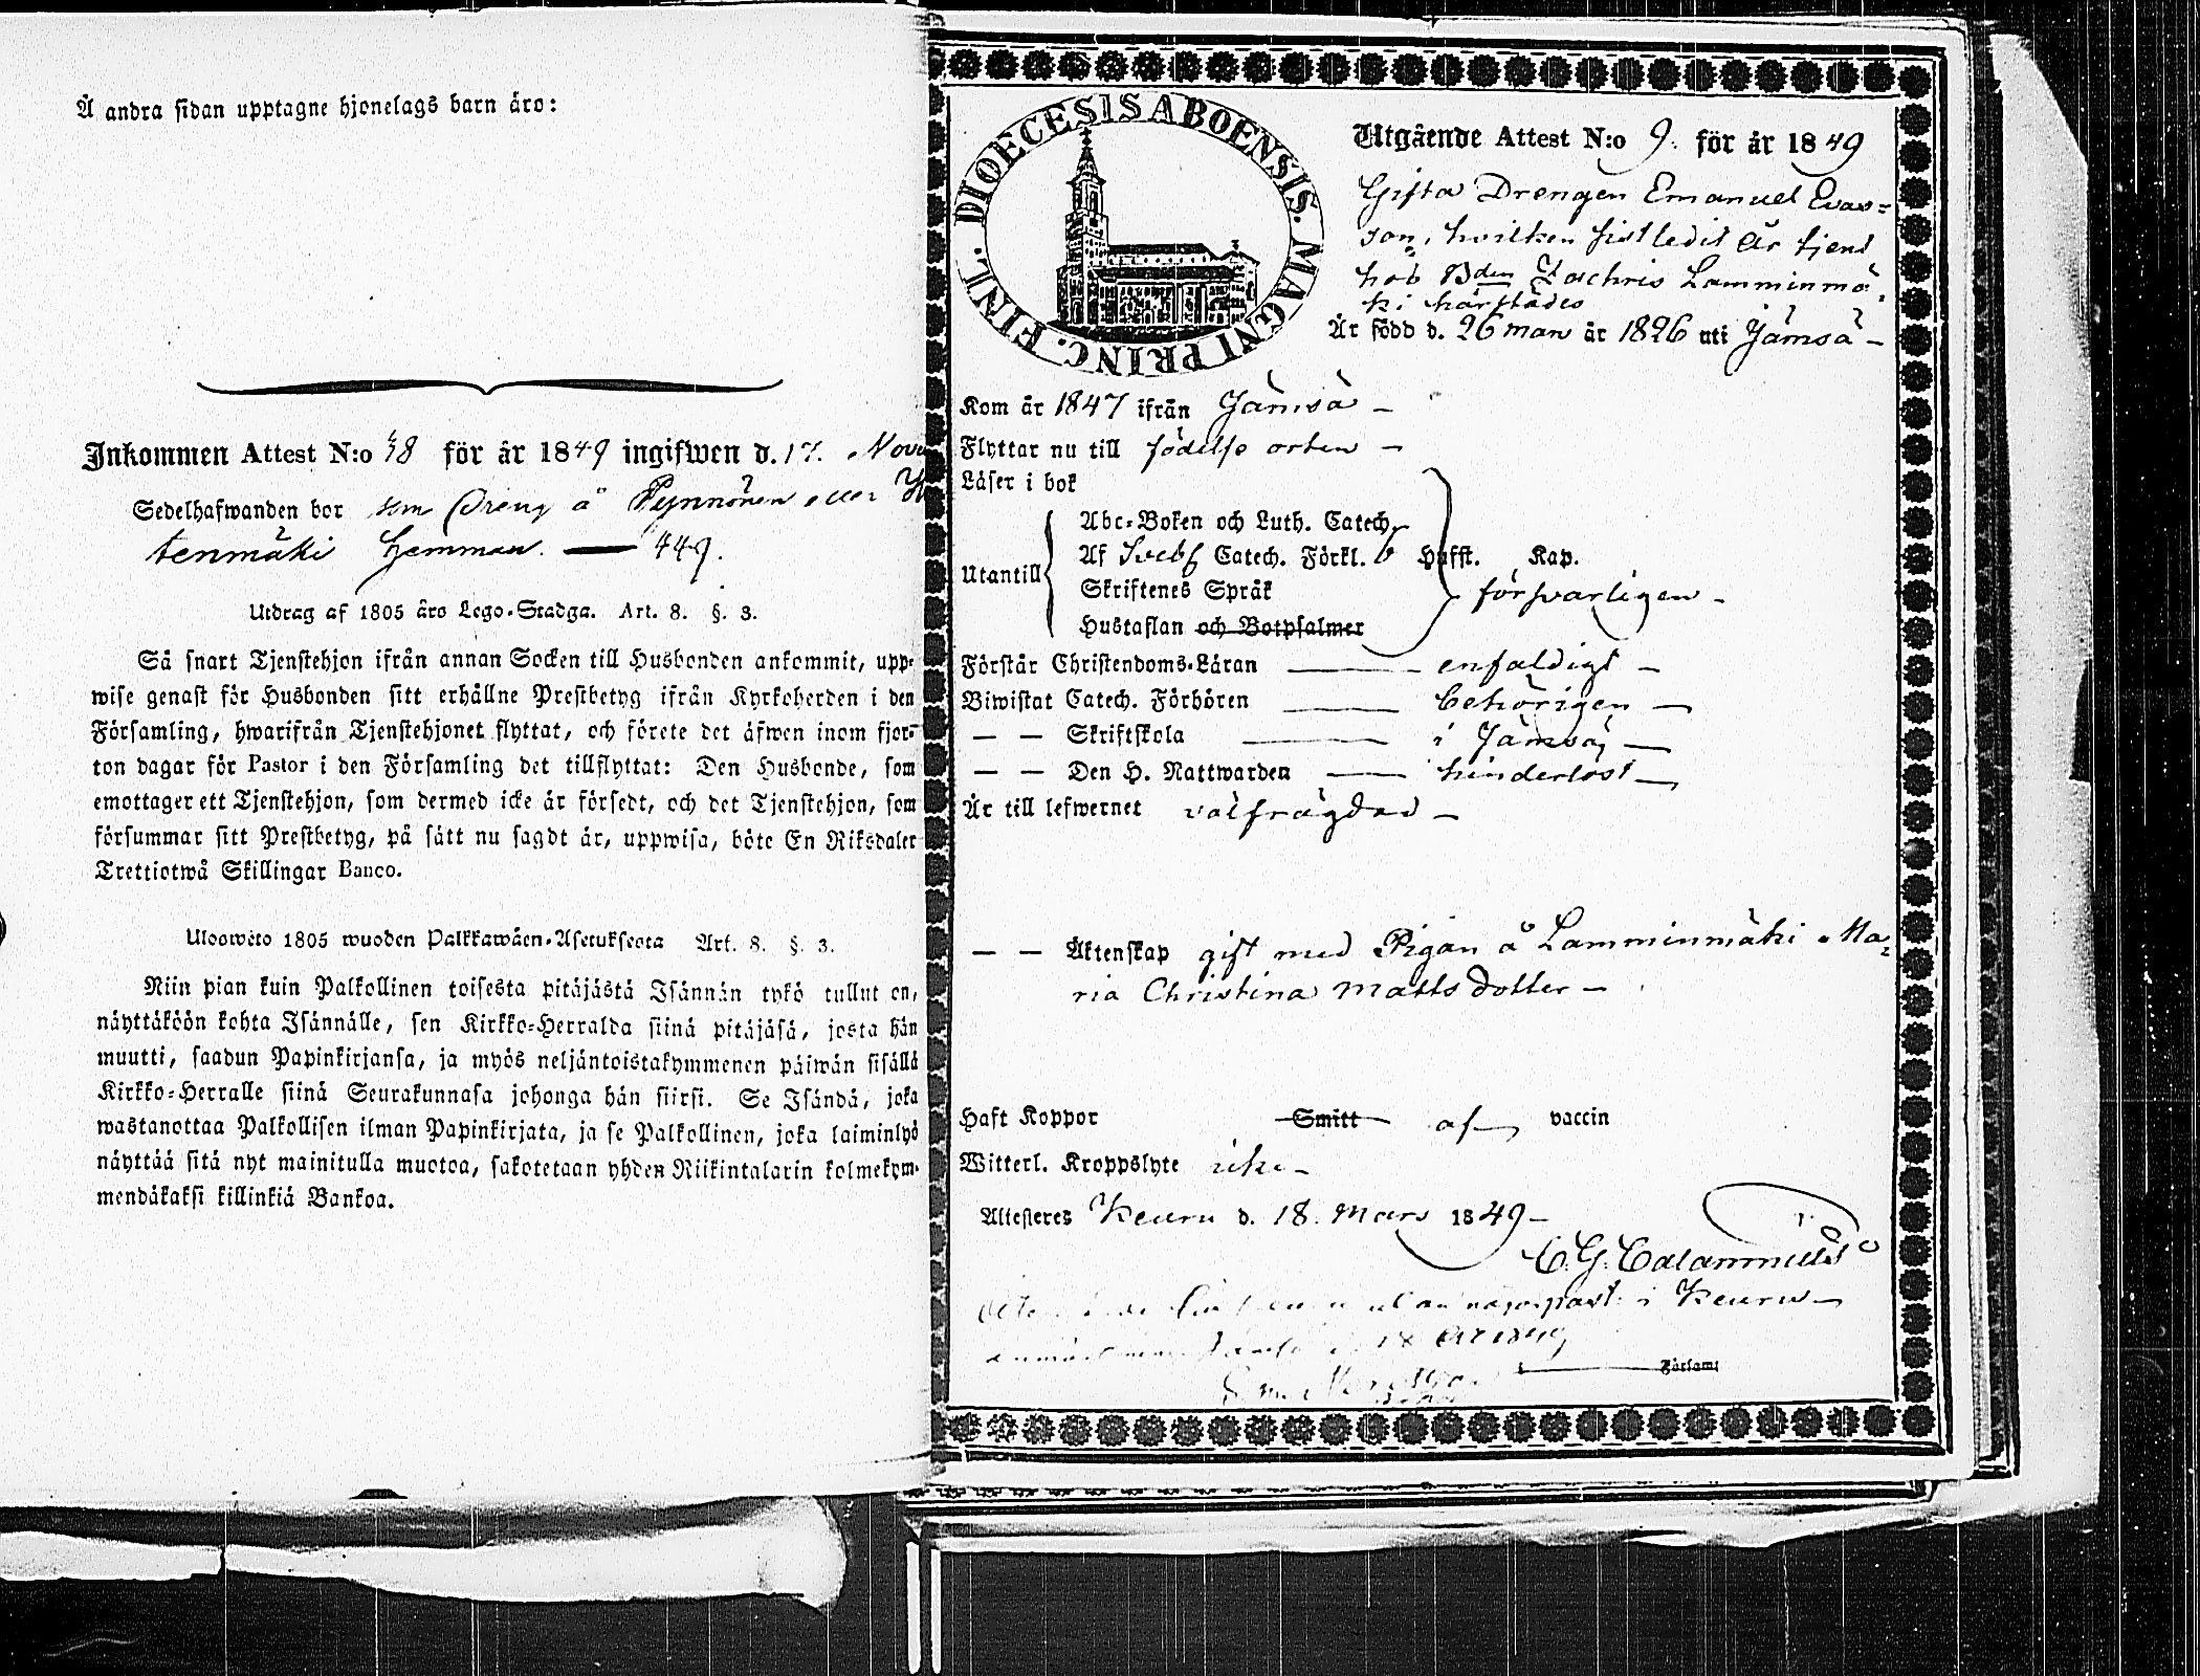 Å andra sidan upptagne hjonelags barn äro:
Inkommen Attest N:o 48 för år 1849 ingifwen d. 17. Nov
Sedelhafwanden bor som Dreng å Pynnönen eller
tenmäki Hemman. — 449.
Utdrag af 1805 års Lego-Stadga. Art. 8. §. 3.
Så snart Tjenstehjon ifrån annan Socken till Husbonden ankommit, upp-
wise genast för Husbonden sitt erhållne Prestbetyg ifrån Kyrkoherden i den
Församling, hwarifrån Tjenstehjonet flyttat, och förete det äfwen inom fjor-
ton dagar för Pastor i den Församling det tillflyttat: Den Husbonde, som
emottager ett Tjenstehjon, som dermed icke är försedt, och det Tjenstehjon, som
försummar sitt Prestbetyg, på sätt nu sagdt är, uppwisa, böte En Riksdaler
Trettiotwå Skillingar Banco.
Uloswéto 1805 wuoden Palkkawäen-Asetuksesta Art. 8. §. 3.
Niin pian kuin Palkollinen toisesta pitäjästä Isännän tykö tullut on,
näyttäköön kohta Isännälle, sen Kirkko-Herralda siinä pitäjäsä, josta hän
muutti, saadun Papinkirjansa, ja myös neljäntoistakymmenen päiwän sisällä
Kirkko-Herralle siinä Seurakunnasa johonga hän siirsi. Se Isändä, joka
wastanottaa Palkollisen ilman Papinkirjata, ja se Palkollinen, joka laiminlyö
näyttää sitä nyt mainitulla muotoa, sakotetaan yhden Riikintalarin kolmekym-
mendäkaksi killinkiä Bankoa.
DIOECESIS ABOENSIS. MAGNI PRINC. FINL.
Utgående Attest N:o 9. för år 1849
Gifta Drengen Emanuel Evas=
son, hvilken sistledit år tjent
hos Bden Zachris Lamminmä
ki härstädes
Är född d. 26 Mars år 1826 uti Jämsä —
Kom år 1847 ifrån Jämsä —
Flyttar nu till födelse orten —
Läser i bok
Utantill
Abc-Boken och Luth. Catech.
Af Svebf Catech. Förkl. 6 Hufst. Kap.
Skriftenes Språk
försvarligen —
Hustaflan och Botpsalmer
Förstår Christendoms-Läran — enfaldigt —
Biwistat Catech. Förhören — behörigen —
— — Skriftskola — i Jämsä, —
— — Den H. Nattwarden — hinderlöst —
Är till lefwernet välfrägdad —
— — Äktenskap gift med Pigan å Lamminmäki Ma=
ria Christina Mattsdotter —
Haft Koppor Smitt af vaccin
Witterl. Kroppslyte icke —
Attesteres Keuru d. 18. Mars 1849 —
C. G. Calamnius
i Keuru —
Församl